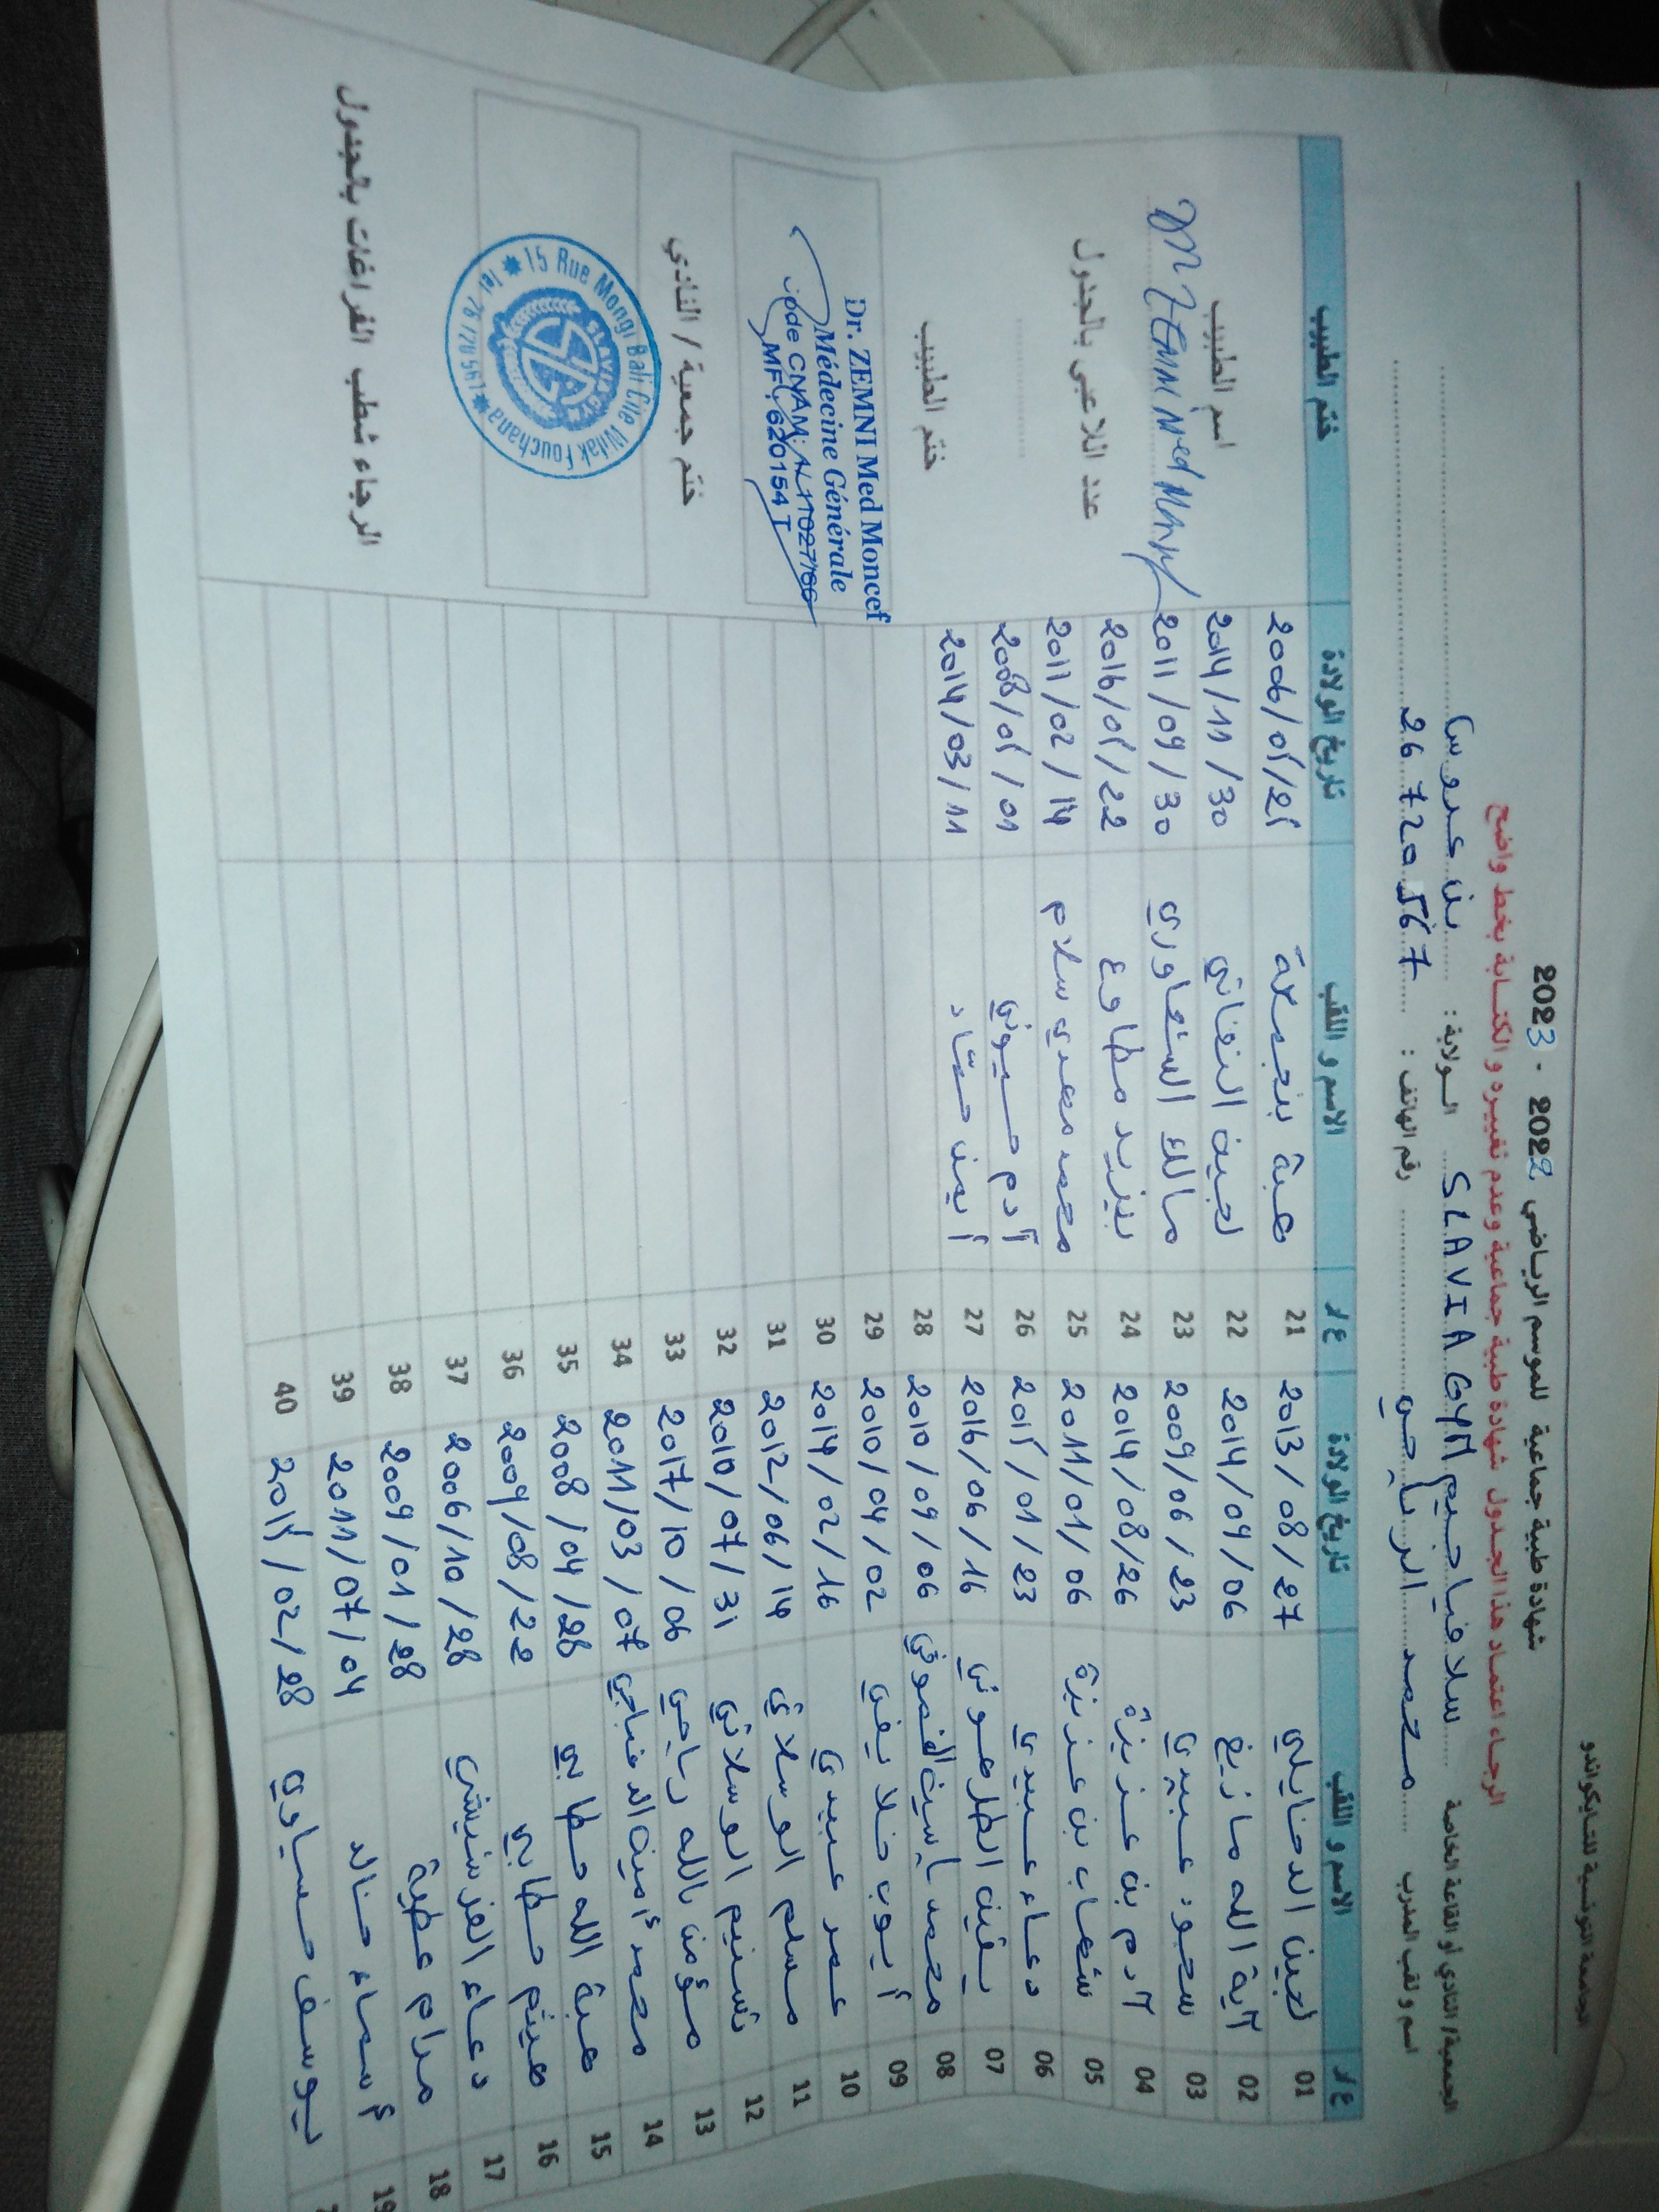 الجامعة التونسية للتايكواندو
شهادة طبية جماعية للموسم الرياضي 2022 - 2023
الرجاء اعتماد هذا الجدول شهادة طبية جماعية وعدم تغييره و الكتابة بخط واضح
الجمعية/ النادي أو القاعة الخاصة سلافيا جيم SLAVIA GYM الولاية : بن عروس
اسم و لقب المدرب محمد الرياحي رقم الهاتف : 26 720 567
ع/ر الاسم و اللقب تاريخ الولادة ع/ر الاسم و اللقب تاريخ الولادة ختم الطبيب
01 لجين الدخايلي 2013/08/27 21 هبة بنجمعة 2006/05/25
02 آية الله مازيغ 2014/09/06 22 لجين النفاتي 2014/11/30
03 سجود عبيدي 2009/06/23 23 مالك 2011/09/30
04 آدم بن عزيزة 2014/08/26 24 يزيد مطاوع 2016/05/22
05 شهاب بن عزيزة 2011/01/06 25 محمد مهدي سلام 2011/02/14
06 دعاء عبيدي 2015/01/23 26 آدم 2008/05/01
07 يقين الطرهوني 2016/06/16 27 أيمن حمّاد 2014/03/11
08 محمد ياسين 2010/09/06 28
09 أيوب خلايفي 2010/04/02 29
10 عمر عبيدي 2014/02/16 30
11 مسلم الوسلاتي 2012/06/14 31
12 تسنيم الوسلاتي 2010/07/31 32
13 مؤمن بالله رياحي 2017/10/06 33
14 محمد أمين الدخايلي 2011/03/07 34
15 هبة الله حطابي 2008/04/28 35
16 هيثم حطابي 2009/08/22 36
17 دعاء الغزنيشي 2006/10/28 37
18 مرام عطية 2009/01/28 38
19 أسماء خالد 2011/07/04 39
يوسف عيساوي 2015/02/28 40
اسم الطبيب
Dr ZEMNI Med
عدد اللاعبي بالجدول
ختم الطبيب
Dr. ZEMNI Med Moncef
Médecine Générale
Code CNAM:
MF: 620154 T
ختم جمعية / النادي
15 Rue Mongi Bali Cité Wifak Fouchana
SLAVIA GYM
الرجاء شطب الفراغات بالجدول